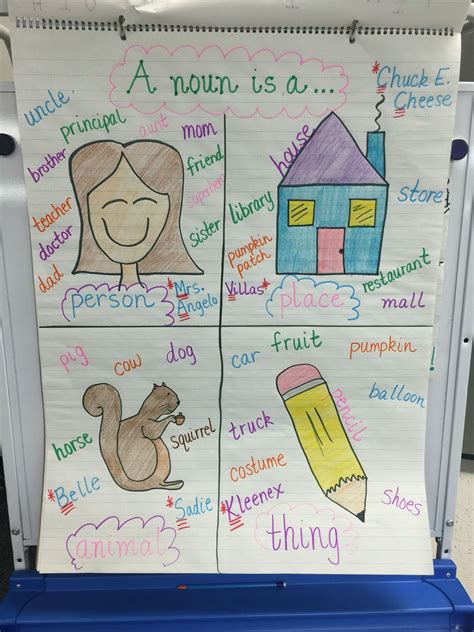 A noun is a...
uncle
principal
aunt
mom
brother
friend
teacher
superhero
doctor
sister
dad
person
*Mrs.
Angelo
*Chuck E.
Cheese
house
store
library
pumpkin
patch
restaurant
*Villas
place
mall
pig
cow
dog
horse
squirrel
*Belle
*Sadie
animal
car
fruit
pumpkin
balloon
truck
pencil
costume
*Kleenex
shoes
thing